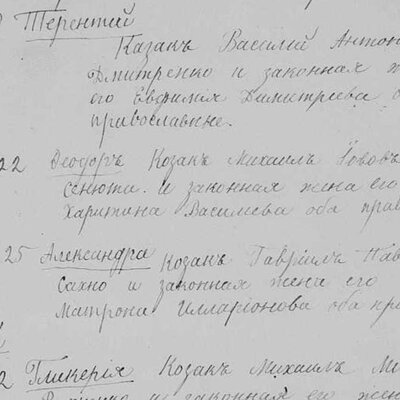 Терентий
Казакъ Василий Антон
Дмитренко и законная ж
его Евфимия Димитрева о
православные.
22 Ѳеодоръ Козакъ Михаилъ Іовов
Сенюта. и законная жена его
Харитина Василева оба прав
25 Александра Козакъ Гавріилъ Пав
Сахно и законная жена его
Матрона Илларіонова оба пра
2 Гликерія Козакъ Михаилъ М
и законная его жен